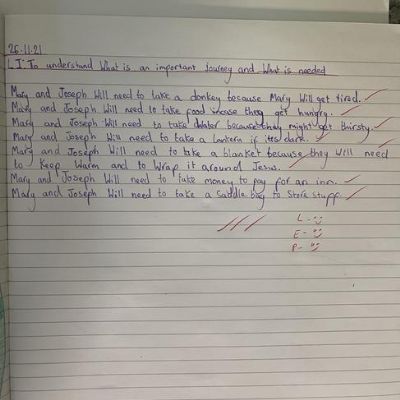 26.11.21
L.I: To understand what is an important Journey and what is needed
Mary and Joseph Will need to take a donkey because Mary Will get tired.
Mary and Joseph Will need to take food incase they get hungry.
Mary and Joseph Will need to take Water because they might get thirsty.
Mary and Joseph Will need to take a lantern if its dark.
Mary and Joseph Will need to take a blanket because they Will need
to keep warm and to Wrap it around Jesus.
Mary and Joseph Will need to take money to pay for an inn.
Mary and Joseph Will need to take a Saddle bag to Store Stuff.
L -
E -
P -